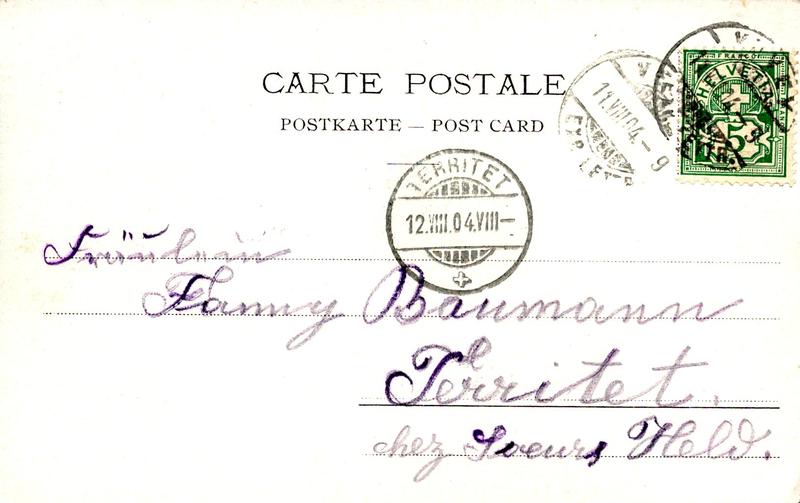 CARTE POSTALE
POSTKARTE — POST CARD
11.VIII.04.– 9
EXP. LET
HELVETIA
FRANCO
5
TERRITET
12.VIII.04.VIII–
Fräulein
Fanny Baumann
Territet.
chez Soeurs Held.